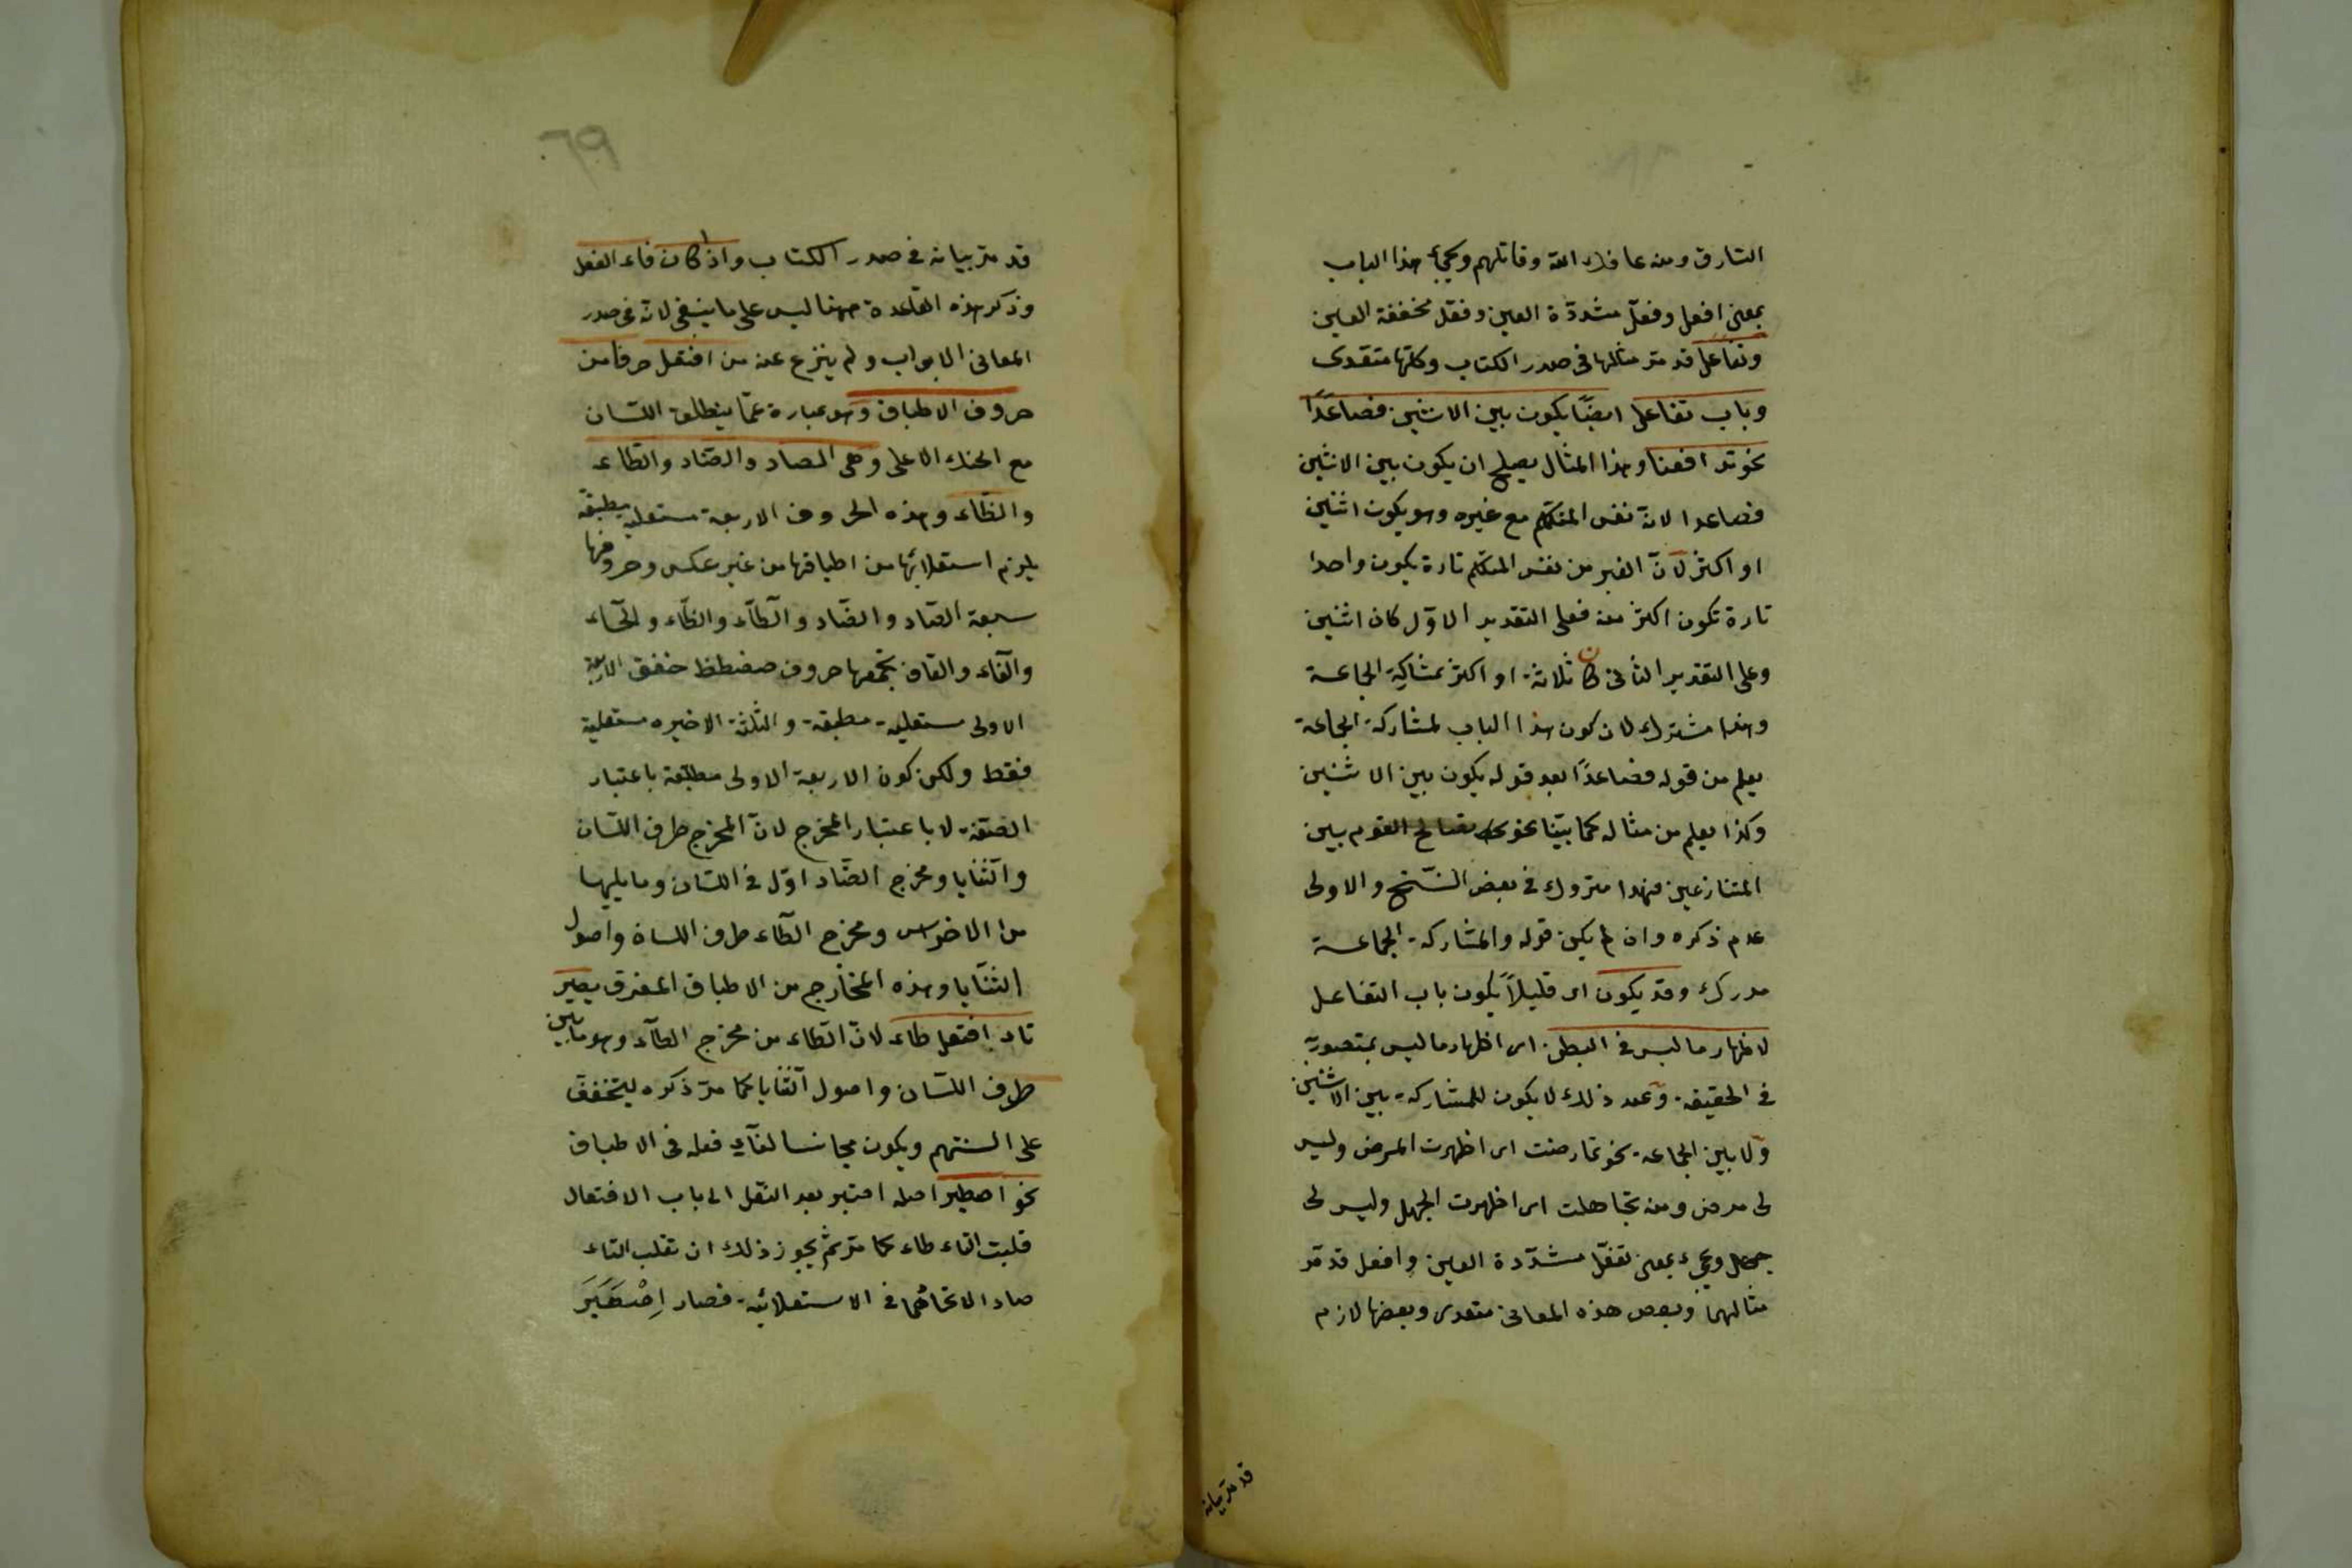 السارق ومنه عافاك الله وقاتلهم ويجئ هذا الباب
بمعنى افعل وفعّل مشدّدة العين وفعل مخففة العين
وتفاعل قد مر مثالها فى صدر الكتاب وكلها متعدى
وباب تفاعل ايضًا يكون بين الاثنين فصاعدًا
نحو تدافعنا وهذا المثال يصلح ان يكون بين الاثنين
فصاعدا لانّ نفس المتكلم مع غيره وهو يكون اثنين
او اكثر لانّ الغير من نفس المتكلم تارة يكون واحدا
تارة تكون اكثر منه فعلى التقدير الاوّل كان اثنين
وعلى التقدير الثانى كان ثلاثة او اكثر بمشاركة الجماعة
وهنا مشترك لان كون هذا الباب لمشاركة الجماعة
يعلم من قوله فصاعدًا بعد قوله يكون بين الاثنين
وكذا يعلم من مثاله كما بيّنا نحو تصالح القوم بين
المتنازعين فهذا متروك فى بعض النسّخ والاولى
عدم ذكره وان لم يكن قوله والمشاركة الجماعة
مدرك وقد يكون اى قليلاً يكون باب التفاعل
لاظهار ما ليس فى البطن اى اظهار ما ليس بمتصورة
فى الحقيقة وعند ذلك لا يكون للمشاركة بين الاثنين
ولا بين الجماعة نحو تمارضت اى اظهرت المرض وليس
لى مرض ومنه تجاهلت اى اظهرت الجهل وليس لى
جهل ويجئ بمعنى تفعّل مشدّدة العين وافعل قد مّر
مثالهما وبعض هذه المعانى متعدى وبعضها لازم
قد مر بيانه
٦٩
قد مرّ بيانه فى صدر الكتاب واذا كان فاء الفعل
وذكر هذه القاعدة ههنا ليس على ما ينبغى لانّه فى صدر
المعانى الابواب ولم ينزع عنه من افتعل حرفا من
حروف الاطباق وهو عبارة عمّا ينطلق اللسان
مع الحنك الاعلى وهى الصاد والضاد والطاء
والظاء وهذه الحروف الاربعة مستعلية مطبقة
يلزم استعلائها من اطباقها من غير عكس وحروفها
سبعة الصاد والضاد والطاء والظاء والخاء
والغاء والقاف يجمعها حروف صضطظ خغق الاربعة
الاولى مستعلية مطبقة والثلثة الاخيره مستعلية
فقط ولكن كون الاربعة الاولى مطبقة باعتبار
الصفة لا باعتبار المخرج لانّ المخرج طرف اللسان
والثنايا ومخرج الضاد اوّل فى اللسان وما يليها
من الاضراس ومخرج الطاء طرف اللسان واصول
الثنايا وهذه المخارج من الاطباق المفرق يصير
تاء افتعل طاء لانّ الطاء من مخرج الطاء وهو ما بين
طرف اللسان واصول الثنايا كما مرّ ذكره ليتخفف
على السنتهم ويكون مجانسا لفاء فعله فى الاطباق
نحو اصطبر اصله اصتبر بعد النقل الى باب الافتعال
قلبت التاء طاء كما مرّ ثم يجوز ذلك ان تقلب التاء
صاد الاتحادهما فى الاستعلائية فصار اِصْطَبَرَ